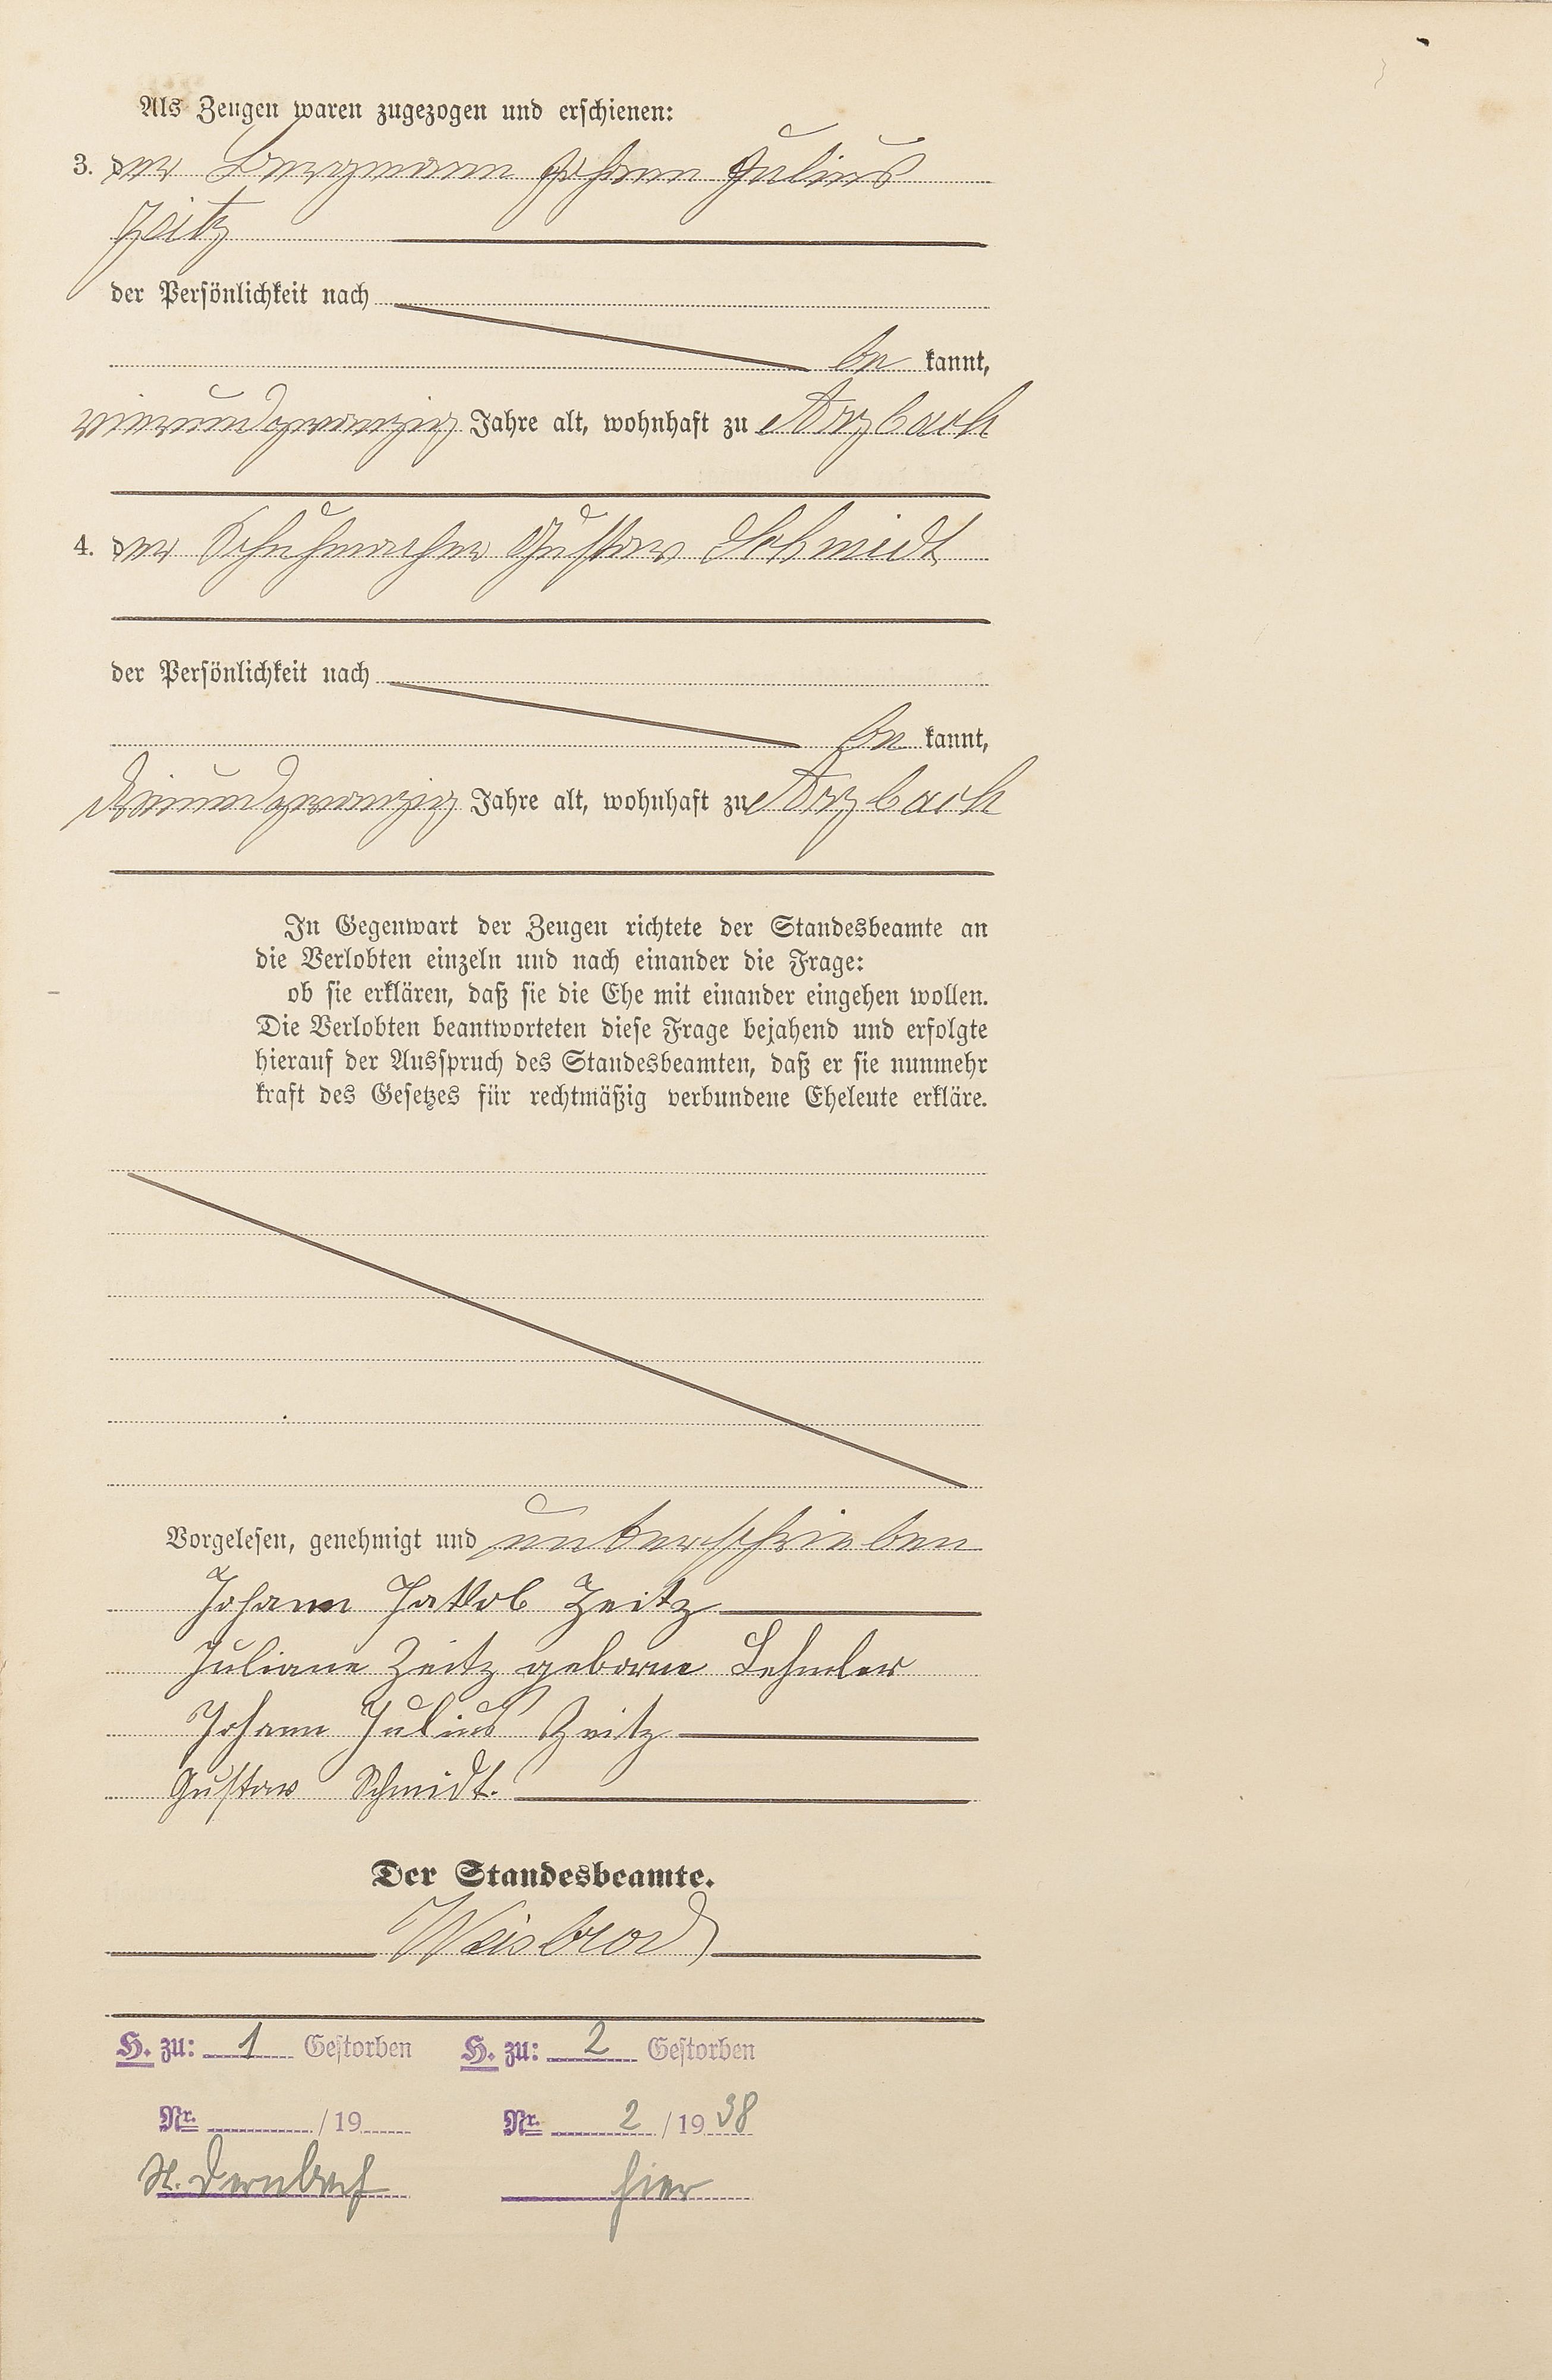 Als Zeugen waren zugezogen und erschienen:
3. der Bergmann Johann Julius
Zeitz
der Persönlichkeit nach
be kannt,
vierundzwanzig Jahre alt, wohnhaft zu Arzbach
4. der Schuhmacher Gustav Schmidt
der Persönlichkeit nach
be kannt,
dreiundzwanzig Jahre alt, wohnhaft zu Arzbach
In Gegenwart der Zeugen richtete der Standesbeamte an
die Verlobten einzeln und nach einander die Frage:
ob sie erklären, daß sie die Ehe mit einander eingehen wollen.
Die Verlobten beantworteten diese Frage bejahend und erfolgte
hierauf der Ausspruch des Standesbeamten, daß er sie nunmehr
kraft des Gesetzes für rechtmäßig verbundene Eheleute erkläre.
Vorgelesen, genehmigt und unterschrieben
Johann Jakob Zeitz
Juliane Zeitz geborne Lehmler
Johann Julius Zeitz
Gustav Schmidt.
Der Standesbeamte.
Weisbrod
H. zu: 1 Gestorben H. zu: 2 Gestorben
Nr. /19 Nr. 2 /19 38
Dernbach hier